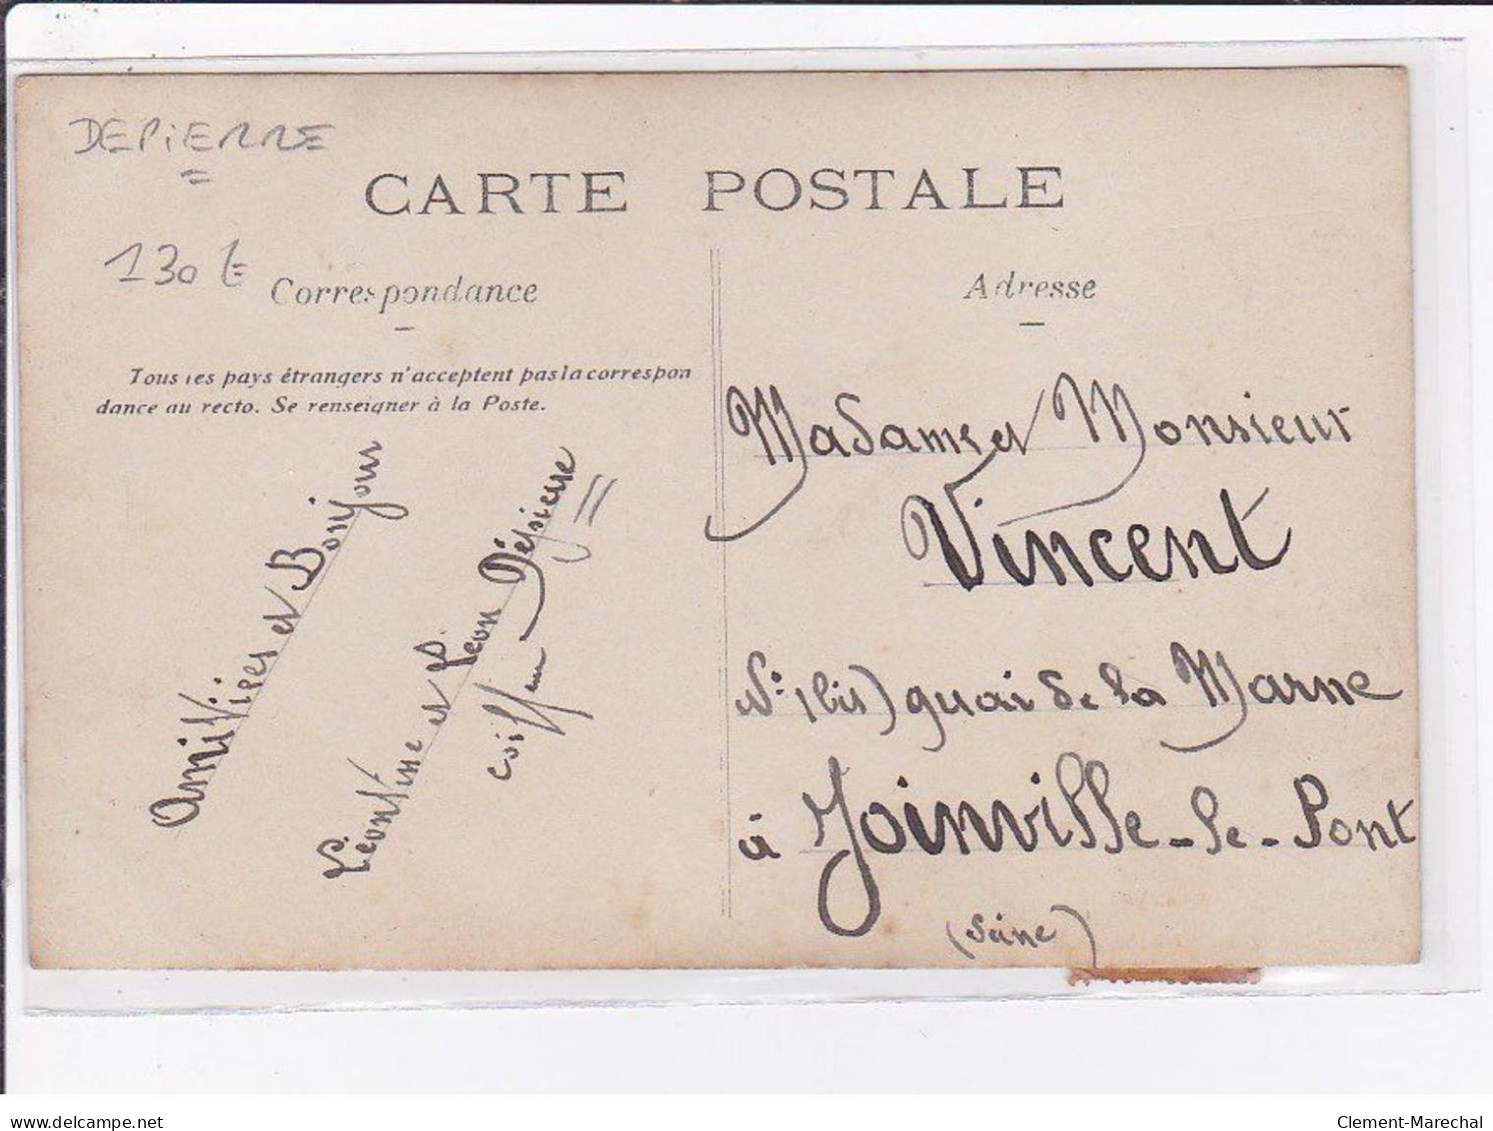 DEPIERRE
CARTE POSTALE
130 €
Correspondance
Tous les pays étrangers n'acceptent pas la correspon
dance au recto. Se renseigner à la Poste.
Amitiées et Bonjour
Léontine et Léon Dépierre
coiffeur
Adresse
Madame et Monsieur
Vincent
N: 1 bis) quai de la Marne
à Joinville-le-Pont
(Seine)
delcampe.net
Clement-Marechal